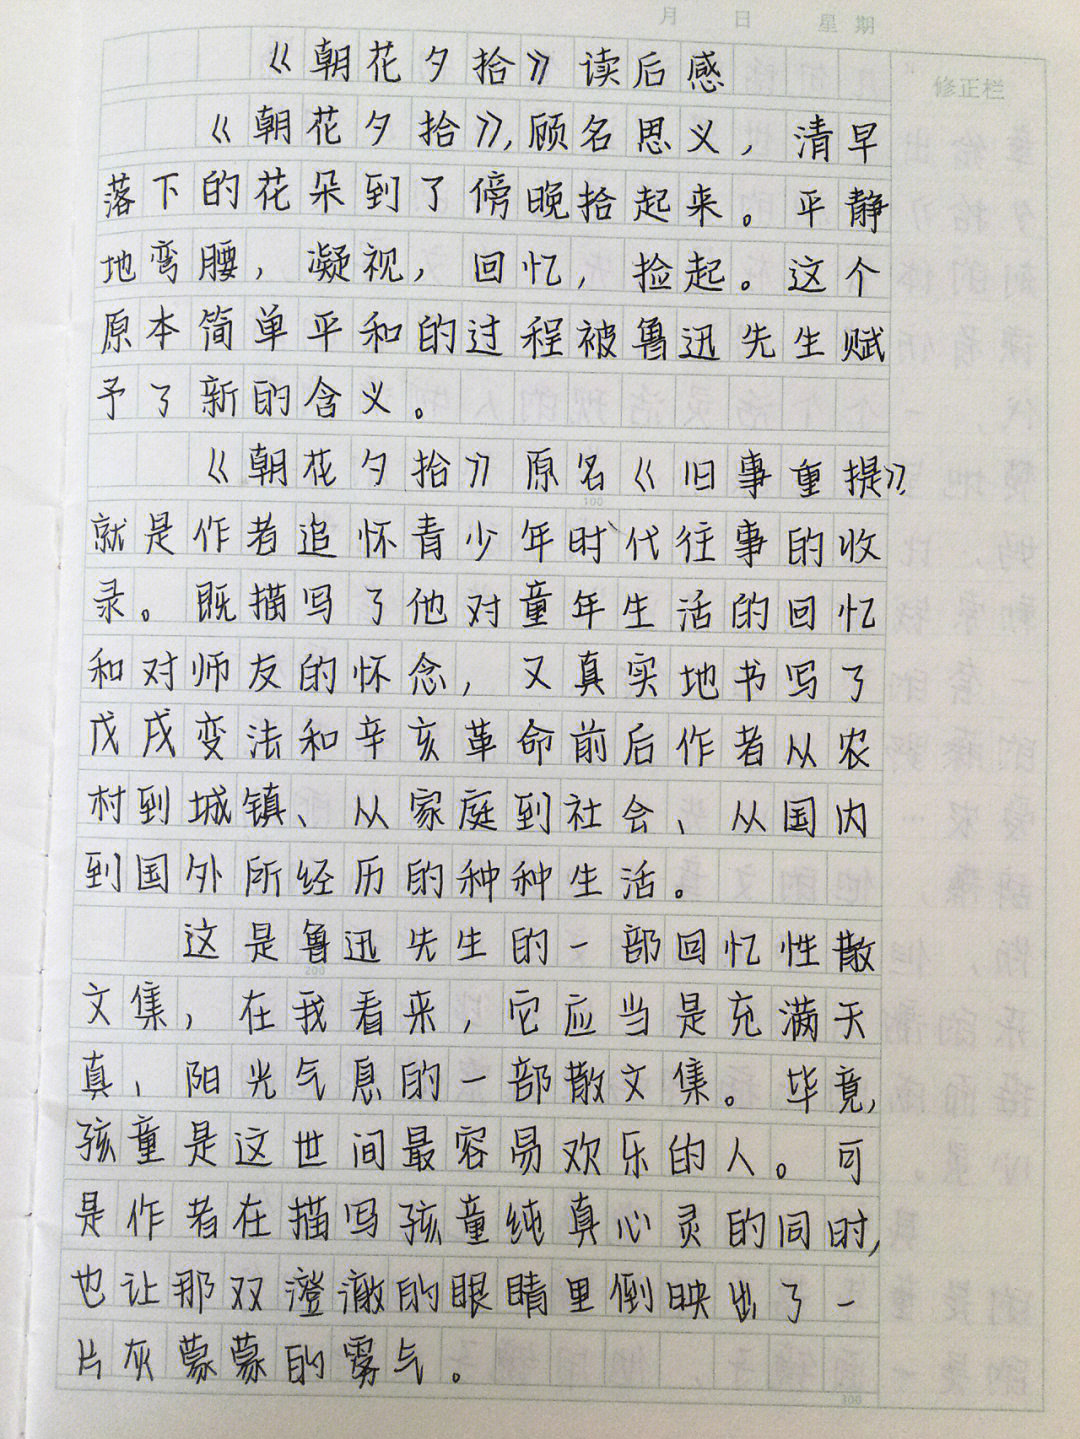 月 日 星期
修正栏
《朝花夕拾》读后感
《朝花夕拾》,顾名思义，清早
落下的花朵到了傍晚拾起来。平静
地弯腰，凝视，回忆，捡起。这个
原本简单平和的过程被鲁迅先生赋
予了新的含义。
《朝花夕拾》原名《旧事重提》,
100
就是作者追怀青少年时代往事的收
录。既描写了他对童年生活的回忆
和对师友的怀念，又真实地书写了
戊戌变法和辛亥革命前后作者从农
村到城镇、从家庭到社会、从国内
到国外所经历的种种生活。
这是鲁迅先生的一部回忆性散
200
文集，在我看来，它应当是充满天
真、阳光气息的一部散文集。毕竟,
孩童是这世间最容易欢乐的人。可
是作者在描写孩童纯真心灵的同时,
也让那双澄澈的眼睛里倒映出了一
片灰蒙蒙的雾气。
300